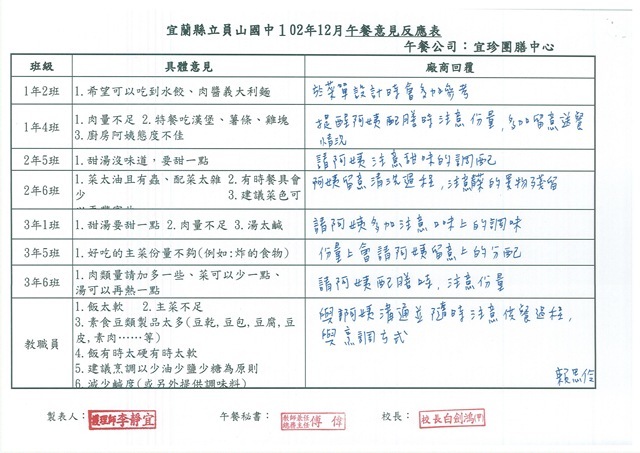 宜蘭縣立員山國中102年12月午餐意見反應表
午餐公司：宜珍團膳中心
班級 具體意見 廠商回覆
1年2班 1.希望可以吃到水餃、肉醬義大利麵 於菜單設計時會多加參考
1年4班 1.肉量不足 2.特餐吃漢堡、薯條、雞塊 提醒阿姨配膳時注意份量，多加留意送餐
3.廚房阿姨態度不佳 情況
2年5班 1.甜湯沒味道，要甜一點 請阿姨注意甜味的調配
2年6班 1.菜太油且有蟲、配菜太雜 2.有時餐具會 阿姨留意清洗過程，注意菜的異物殘留
少 3.建議菜色可
3年1班 1.甜湯要甜一點 2.肉量不足 3.湯太鹹 請阿姨多加注意口味上的調味
3年5班 1.好吃的主菜份量不夠(例如:炸的食物) 份量上會請阿姨留意上的分配
3年6班 1.肉類量請加多一些、菜可以少一點、 請阿姨配膳時，注意份量
湯可以再熱一點
教職員 1.飯太軟 2.主菜不足 與阿姨溝通並隨時注意供餐過程，
3.素食豆類製品太多(豆乾,豆包,豆腐,豆 與烹調方式
皮,素肉……等)
4.飯有時太硬有時太軟
5.建議烹調以少油少鹽少糖為原則
6.減少鹹度(或另外提供調味料)
製表人： 護理師李靜宜 午餐秘書： 教師兼任總務主任傅偉 校長： 校長白劍鴻(甲)